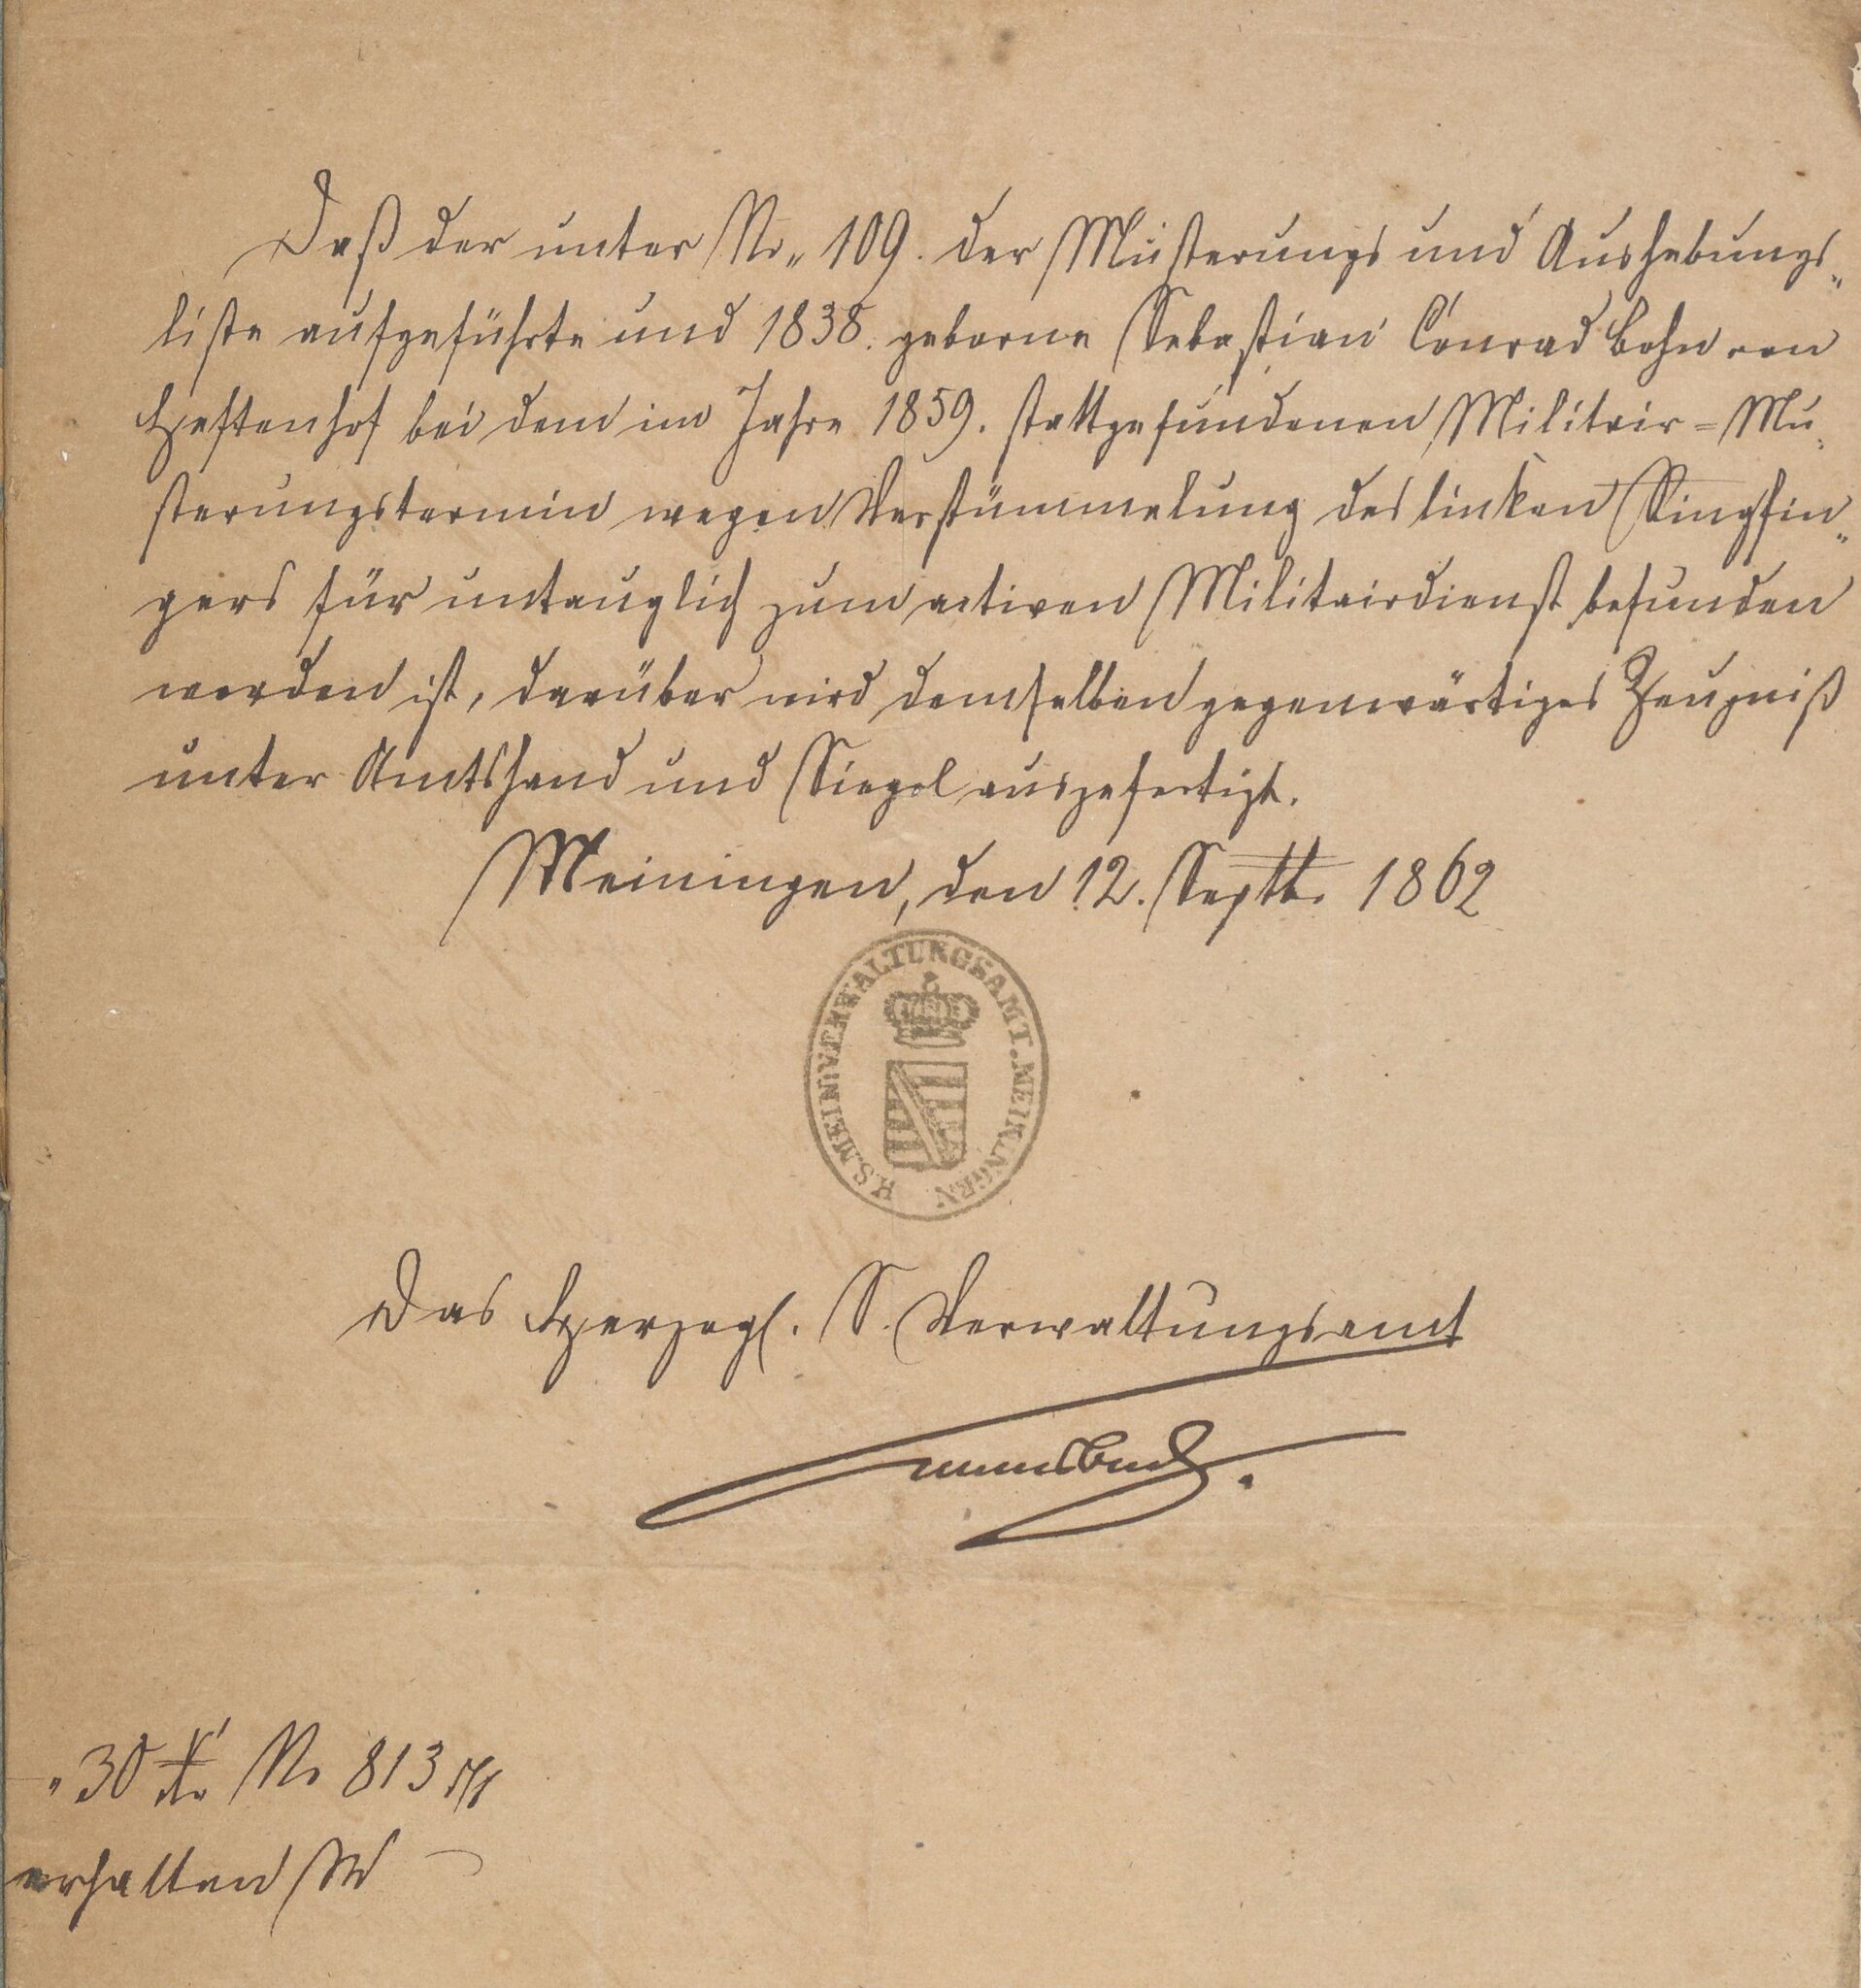 Daß der unter No„ 109. der Musterungs und Aushebungs„
liste aufgeführte und 1838. geborne Sebastian Conrad Bohn von
Heftenhof bei dem im Jahre 1859. stattgefundenen Militair=Mu„
sterungstermin wegen Verstümmelung des linken Ringfin„
gers für untauglich zum activen Militairdienst befunden
worden ist, darüber wird demselben gegenwärtiges Zeugniß
unter Amtshand und Siegel ausgefertigt.
Meiningen, den 12. Septb. 1862
H.S.MEIN:VERWALTUNGSAMT.MEININGEN
Das Herzogl. S. Verwaltungsamt
„ 30 x No 813
erhalten